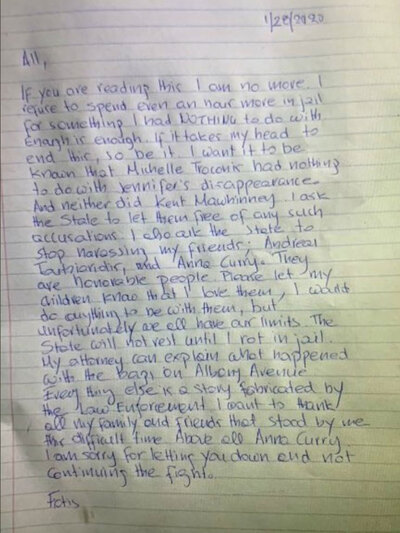 1/28/2020
All,
If you are reading this I am no more. I
refuse to spend even an hour more in jail
for something I had NOTHING to do with
Enough is enough. If it takes my head to
end this, so be it. I want it to be
known that Michelle Troconis had nothing
to do with Jennifer's disappearance.
And neither did Kent Mawhinney. I ask
the State to let them free of any such
accusations. I also ask the State to
stop harassing my friends; Andreas
Toutziaridis, and Anna Curry. They
are honorable people. Please let my
children know that I love them, I would
do anything to be with them, but
unfortunately we all have our limits. The
State will not rest until I rot in jail.
My attorney can explain what happened
with the bags on Albany Avenue
Everything else is a story fabricated by
the Law Enforcement. I want to thank
all my family and friends that stood by me
this difficult time. Above all Anna Curry
I am sorry for letting you down and not
continuing the fight.
Fotis